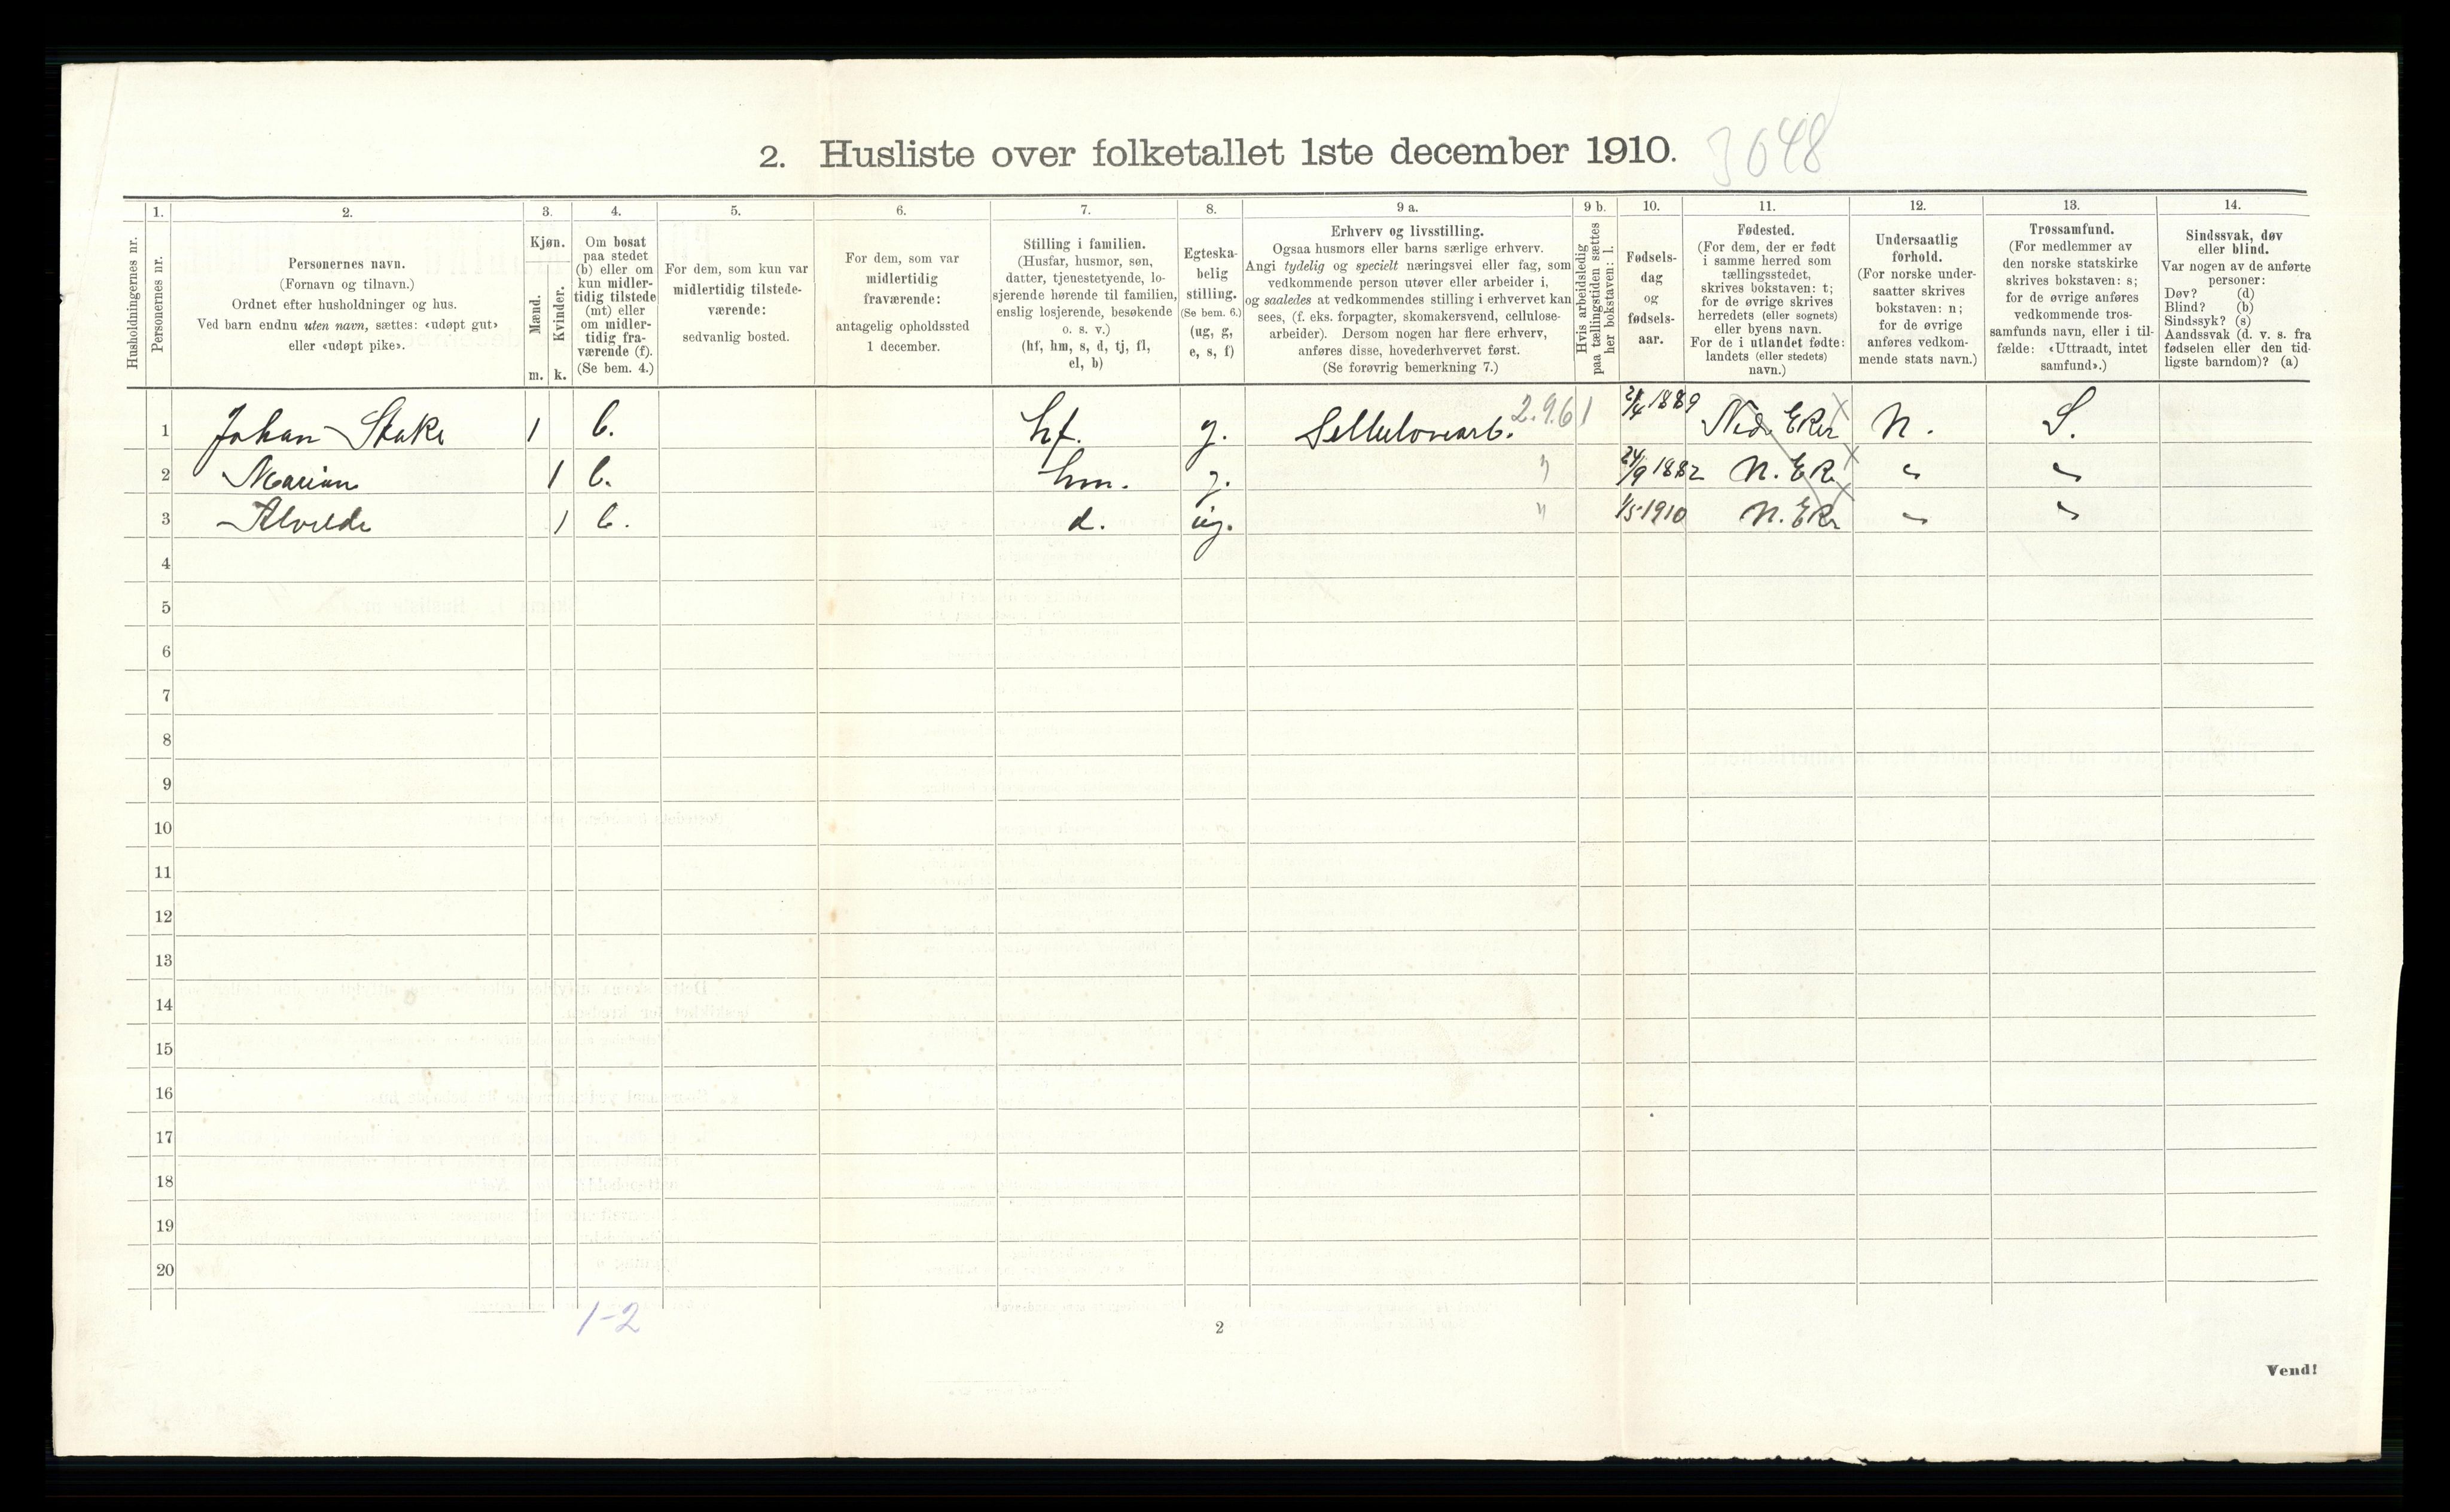 2. Husliste over folketallet 1ste december 1910. 3648
Husholdningernes nr.
1.
Personernes nr.
2.
Personernes navn.
(Fornavn og tilnavn.)
Ordnet efter husholdninger og hus.
Ved barn endnu uten navn, sættes: «udøpt gut»
eller «udøpt pike».
3.
Kjøn.
Mænd.
Kvinder.
m. k.
4.
Om bosat
paa stedet
(b) eller om
kun midler-
tidig tilstede
(mt) eller
om midler-
tidig fra-
værende (f).
(Se bem. 4.)
5.
For dem, som kun var
midlertidig tilstede-
værende:
sedvanlig bosted.
6.
For dem, som var
midlertidig
fraværende:
antagelig opholdssted
1 december.
7.
Stilling i familien.
(Husfar, husmor, søn,
datter, tjenestetyende, lo-
sjerende hørende til familien,
enslig losjerende, besøkende
o. s. v.)
(hf, hm, s, d, tj, fl,
el, b)
8.
Egteska-
belig
stilling.
(Se bem. 6.)
(ug, g,
e, s, f)
9 a.
Erhverv og livsstilling.
Ogsaa husmors eller barns særlige erhverv.
Angi tydelig og specielt næringsvei eller fag, som
vedkommende person utøver eller arbeider i,
og saaledes at vedkommendes stilling i erhvervet kan
sees, (f. eks. forpagter, skomakersvend, cellulose-
arbeider). Dersom nogen har flere erhverv,
anføres disse, hovederhvervet først.
(Se forøvrig bemerkning 7.)
9 b.
Hvis arbeidsledig
paa tællingstiden sættes
her bokstaven: l.
10.
Fødsels-
dag
og
fødsels-
aar.
11.
Fødested.
(For dem, der er født
i samme herred som
tællingsstedet,
skrives bokstaven: t;
for de øvrige skrives
herredets (eller sognets)
eller byens navn.
For de i utlandet fødte:
landets (eller stedets)
navn.)
12.
Undersaatlig
forhold.
(For norske under-
saatter skrives
bokstaven: n;
for de øvrige
anføres vedkom-
mende stats navn.)
13.
Trossamfund.
(For medlemmer av
den norske statskirke
skrives bokstaven: s;
for de øvrige anføres
vedkommende tros-
samfunds navn, eller i til-
fælde: «Uttraadt, intet
samfund».)
14.
Sindssvak, døv
eller blind.
Var nogen av de anførte
personer:
Døv? (d)
Blind? (b)
Sindssyk? (s)
Aandssvak (d. v. s. fra
fødselen eller den tid-
ligste barndom)? (a)
1 Johan Stake 1 b. hf. g. Sellulosearb. 2.9.61 1889 Ned. Eker n. S.
2 Marian 1 b. hm. g. " 24/9 1882 N. Ek. " "
3 Alvilde 1 b. d. ug. " 1/5 1910 N. Eker " "
4
5
6
7
8
9
10
11
12
13
14
15
16
17
18
19
20
1-2
2
Vend!